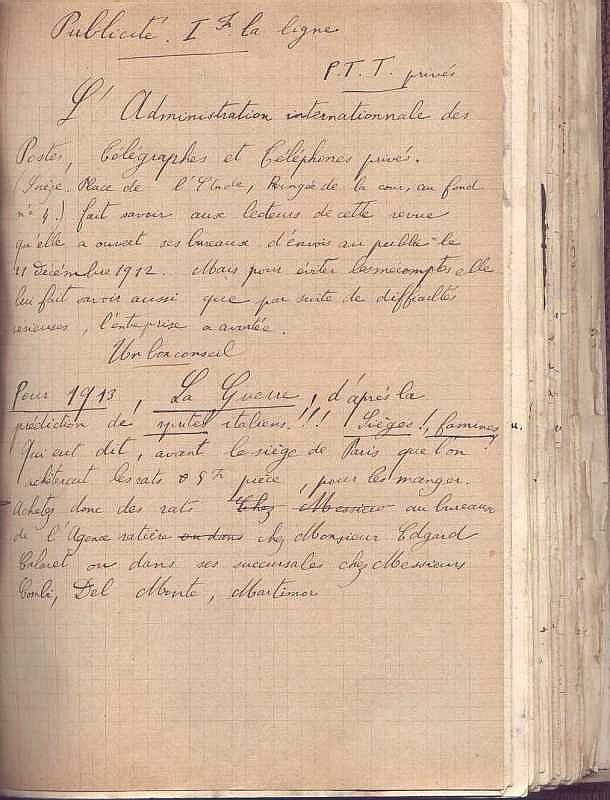 Publicité. 1 Fr la ligne
P.T.T. privés
L'Administration internationnale des
Postes, Télégraphes et Téléphones privés.
(Siège. Place de l'Étude, Rangée de la cour, au fond
n° 4.) fait savoir aux lecteurs de cette revue
qu'elle a ouvert ses bureaux d'envois au public le
11 Décémbre 1912. Mais pour éviter les mécomptes elle
leur fait savoir aussi que par suite de difficultés
sérieuses, l'entreprise a avortée.
Un bon conseil
Pour 1913, La Guerre, d'après la
prédiction de italiens!!! Sièges!, famines,
Qui eut dit, avant le siège de Paris que l'on
achéterait les rats 5 Fr pièce, pour les manger.
Achetez donc des rats Chez Messieurs au bureaux
de l'Agence ratière ou dans chez Monsieur Edgard
ou dans ses succursales chez Messieurs
Del Monte, Martimor